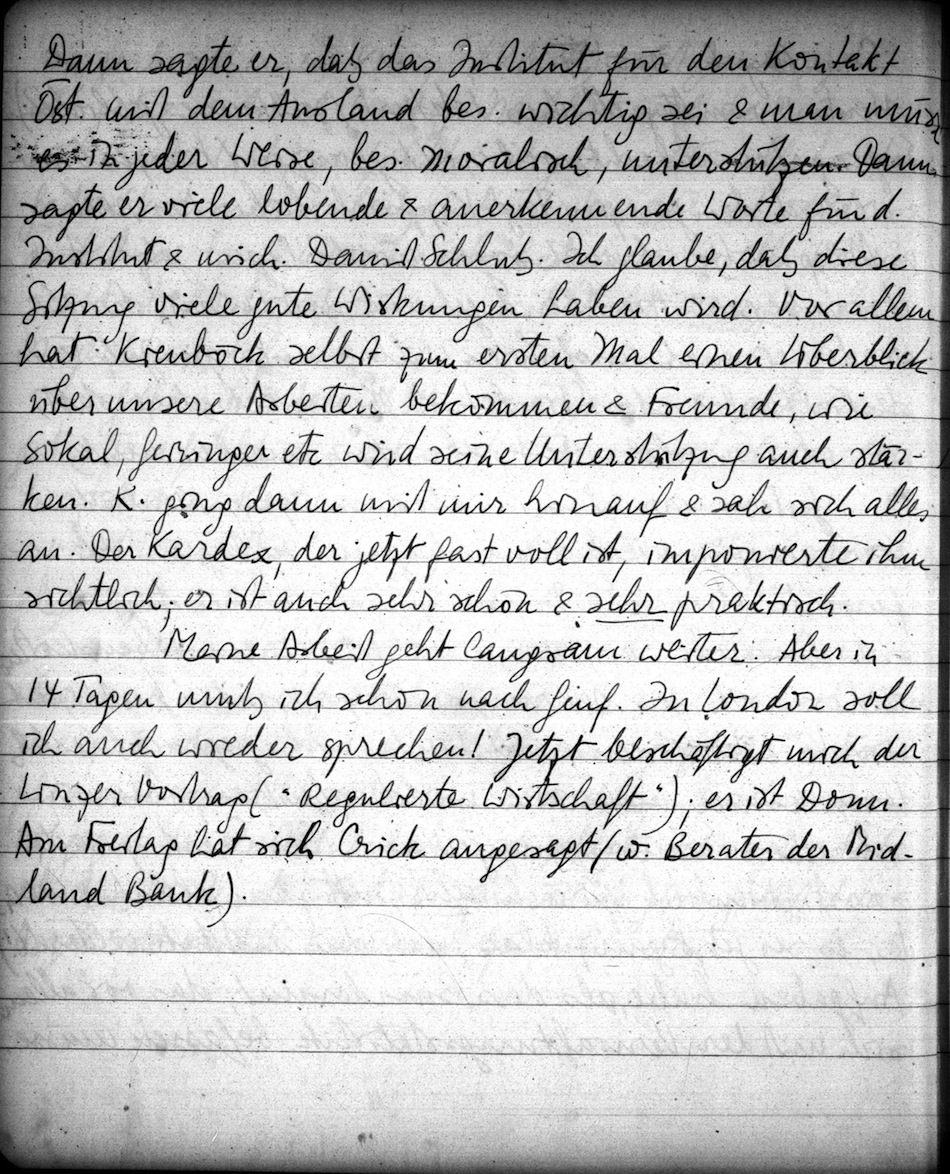 Dann sagte er, daß das Institut für den Kontakt
Öst. mit dem Ausland bes. wichtig sei & man müsse
es in jeder Weise, bes. moralisch, unterstützen. Dann
sagte er viele lobende & anerkennende Worte für d.
Institut & mich. Damit Schluß. Ich glaube, daß diese
Sitzung viele gute Wirkungen haben wird. Vor allem
hat Kienböck selbst zum ersten Mal einen Überblick
über unsere Arbeiten bekommen & Freunde, wie
Sokal, Geiringer etc wird seine Unterstützung auch stär-
ken. K. ging dann mit mir hinauf & sah sich alles
an. Der Kardex, der jetzt fast voll ist, imponierte ihm
sichtlich; er ist auch sehr schön & sehr praktisch.
Meine Arbeit geht langsam weiter. Aber in
14 Tagen muß ich schon nach Genf. In London soll
ich auch wieder sprechen! Jetzt beschäftigt mich der
Linzer Vortrag ("Regulierte Wirtschaft"); er ist Donn.
Am Freitag hat sich Crick angesagt (w. Berater der Mid-
land Bank).